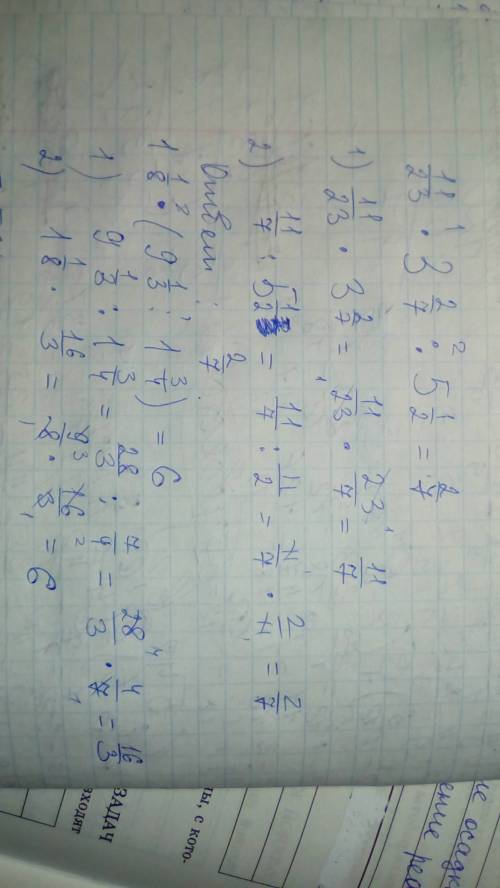 11/23 · 3 2/7 : 5 1/2 = 2/7
1) 11/23 · 3 2/7 = 11/23 · 23/7 = 11/7
2) 11/7 : 5 1/2 = 11/7 : 11/2 = 11/7 · 2/11 = 2/7
Ответ: 2/7
1 1/8 · (9 1/3 : 1 3/4) = 6
1) 9 1/3 : 1 3/4 = 28/3 : 7/4 = 28/3 · 4/7 = 16/3
2) 1 1/8 · 16/3 = 9/8 · 16/3 = 6
ЗАДАЧ
входят
ты, с кото-